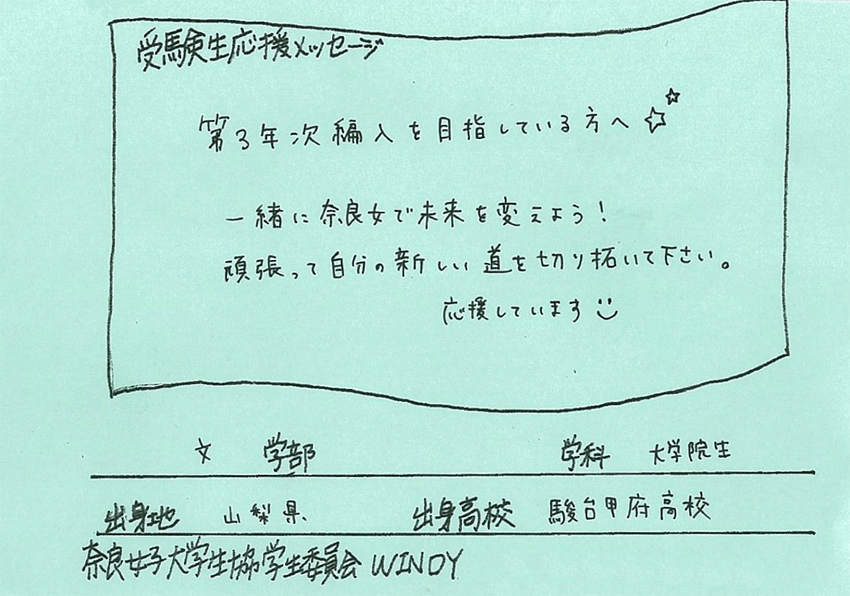 受験生応援メッセージ
第3年次編入を目指している方へ
一緒に奈良女で未来を変えよう!
頑張って自分の新しい道を切り拓いて下さい。
応援しています
文 学部 学科 大学院生
出身地 山梨県 出身高校 駿台甲府高校
奈良女子大学生協学生委員会 WINDY